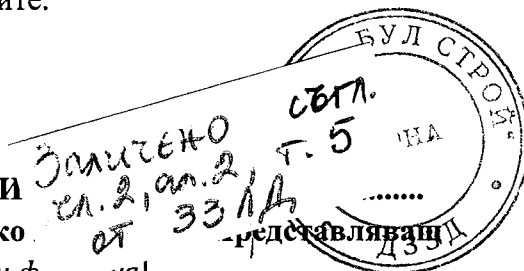 ите.
БУЛ СТРОЙ"
ДЗЗД
НА
Заличено съгл.
чл. 2, ал. 2, т. 5
от ЗЗЛД
И ..........
ко представляващ